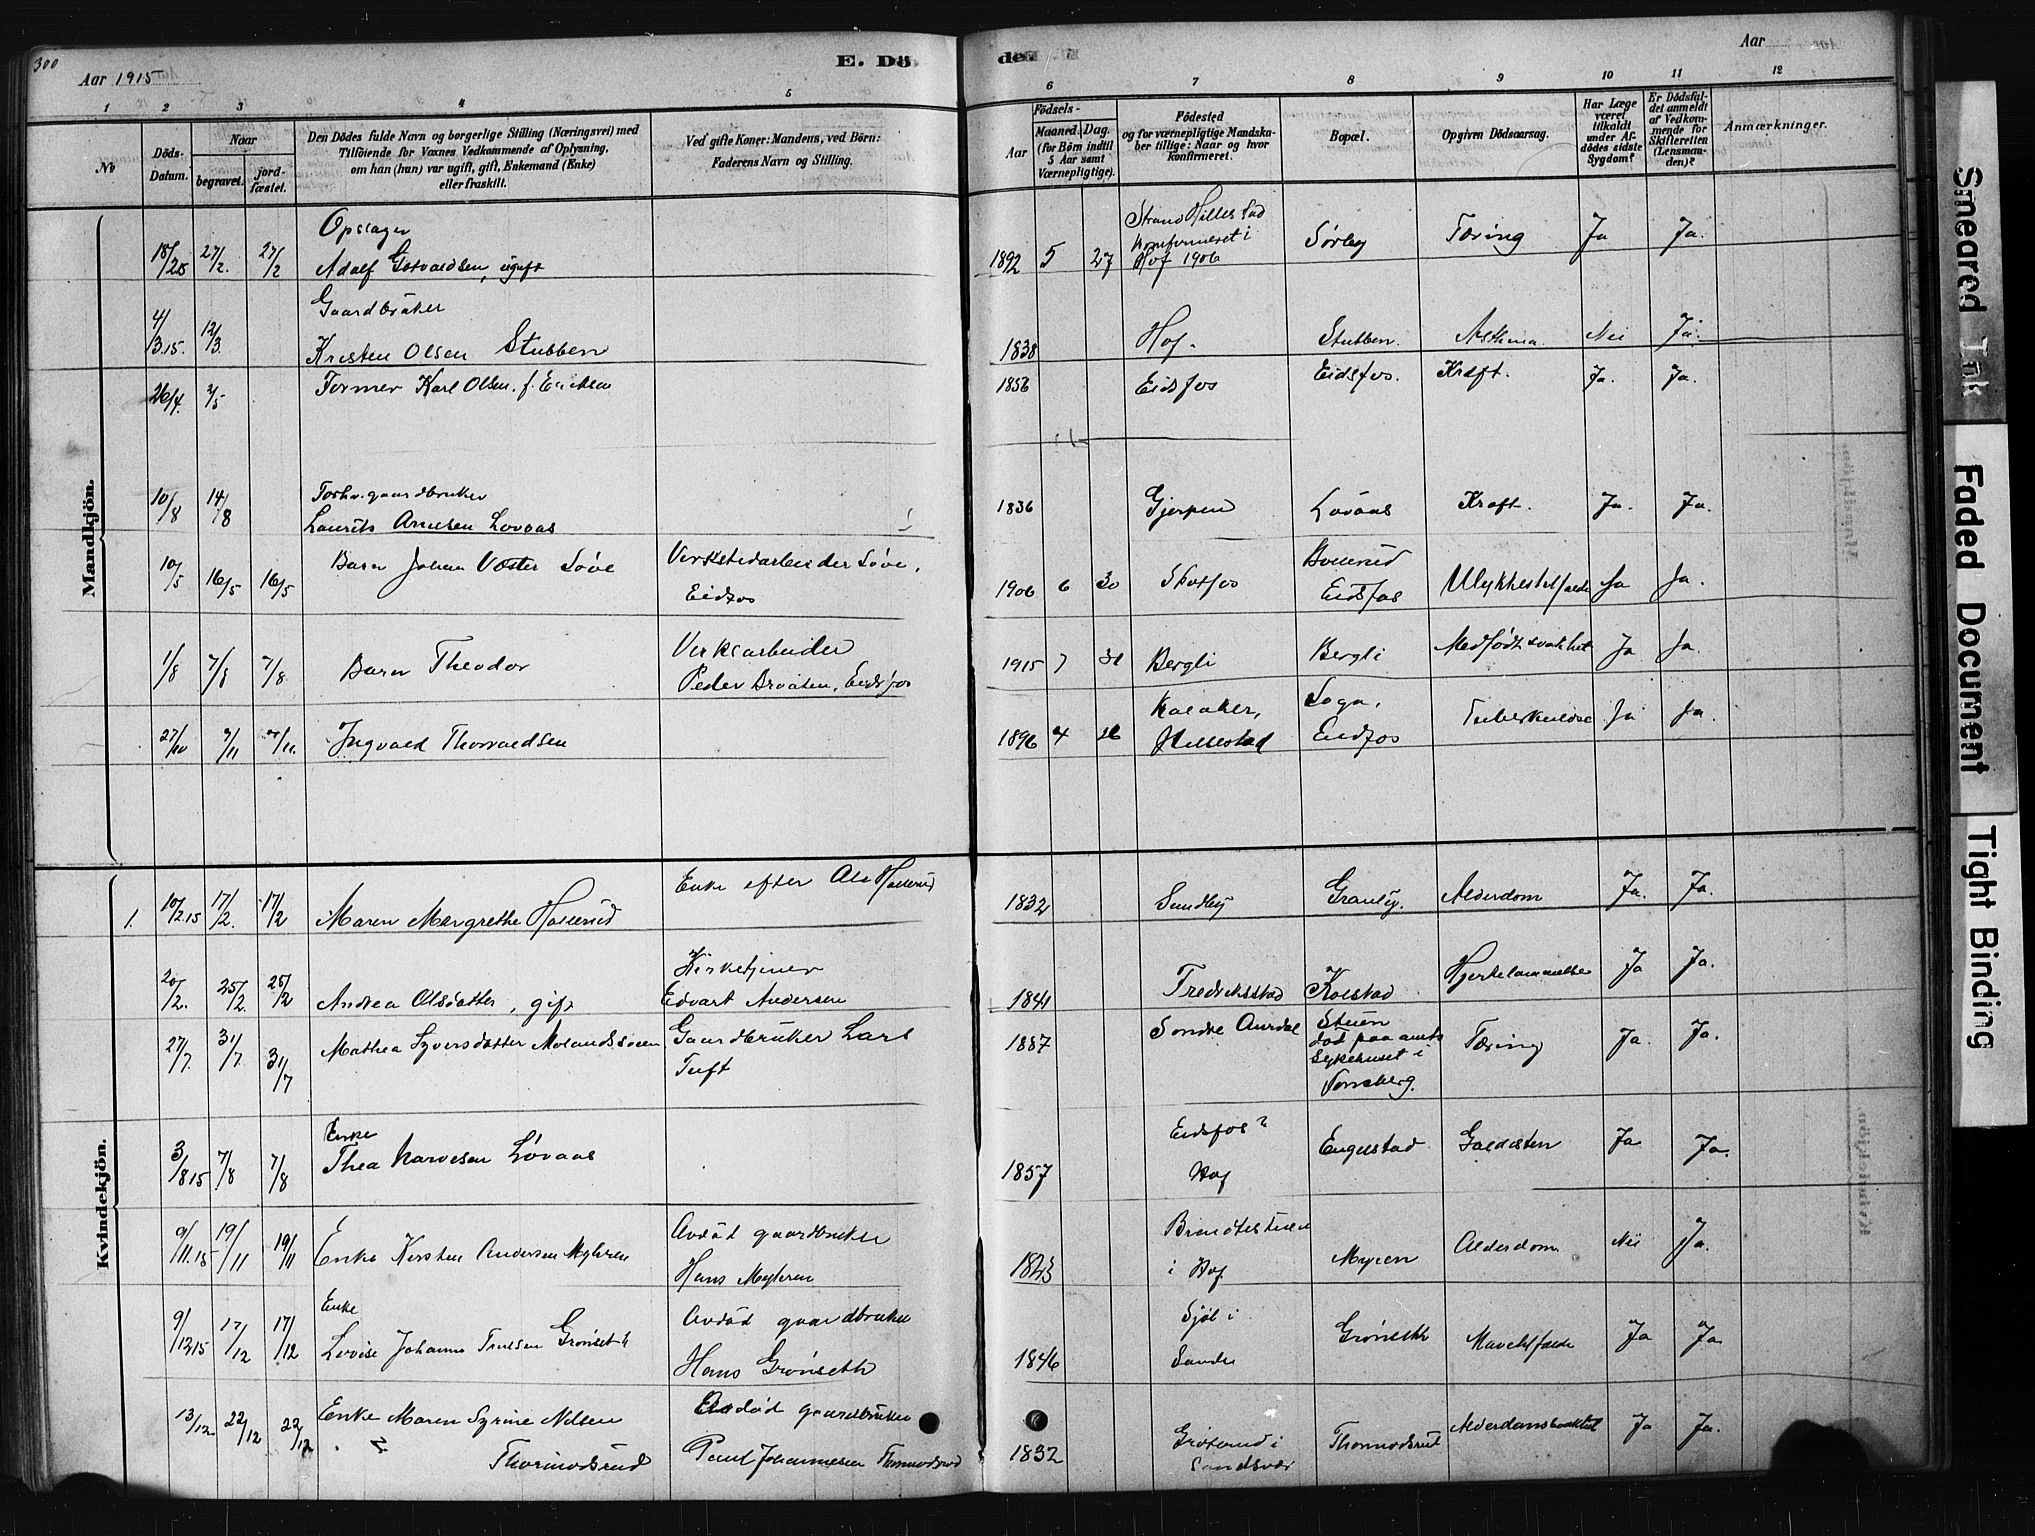 300
Aar 1915
E. Dö-
de.
Aar
1 2 3 4 5 6 7 8 9 10 11 12
No
Döds-Datum.
Naar
begravet.
jord-fæstet.
Den Dödes fulde Navn og borgerlige Stilling (Næringsvei) med
Tilföiende for Voxnes Vedkommende af Oplysning,
om han (hun) var ugift, gift, Enkemand (Enke)
eller fraskilt.
Ved gifte Koner: Mandens, ved Börn:
Faderens Navn og Stilling.
Födsels-
Aar
Maaned. Dag.
(for Börn indtil
5 Aar samt
Værnepligtige).
Födested
og for værnepligtige Mandska-
ber tillige: Naar og hvor
konfirmeret.
Bopæl.
Opgiven Dödsaarsag.
Har Læge
været
tilkaldt
under Af-
dödes sidste
Sygdom?
Er Dödsfal-
det anmeldt
af Vedkom-
mende for
Skifteretten
(Lensman-
den)?
Anmærkninger.
Mandkjön.
Opsager
18/2 15 27/2. 27/2 Adolf Gotvaldsen, ugift 1892 5 27 Strand Hillestad
Konfirmeret i
Hof 1906 Sørby Tæring Ja Ja.
Gaardbruker
4/3.15. 12/3. Kristen Olsen Stubben 1838 Hof. Stubben. Asthma. Nei Ja.
26/4. 2/5 Former Karl Olsen f. Eriksen 1856 Eidsfos Eidsfos. Kræft. Ja. Ja.
10/8 14/8 Forhv. gaardbruker
Laurits Arnesen Lovaas 1836 Gjerpen Lovaas Kræft. Ja. Ja.
10/5 16/5 16/5 Barn Johan Væster Søve Verkstedarbeider Søve,
Eidsfos 1906 6 30 Skotfos Bollerud
Eidsfos Ulykkestilfælde Ja Ja.
1/8 7/8 7/8 Barn Theodor Verksarbeider
Peder Bråten, Eidsfos 1915 7 31 Bergli Bergli Medfødt svakhet Ja Ja.
27/10 7/11 7/11. Ingvald Thorvaldsen 1896 4 26 Kolaker,
Hillestad Soga,
Eidsfos Tuberkulose Ja Ja.
Kvindekjön.
1. 10/2 15 17/2. 17/2 Maren Margrethe Hollerud Enke efter Ole Hollerud 1832 Sundby Granly. Alderdom Ja. Ja.
20/2. 25/2. 25/2 Andrea Olsdatter, gift Kirketjener
Edvart Andersen 1841 Fredriksstad Kolstad Hjertelammelse Ja Ja.
27/7. 31/7. 31/7 Mathea Syversdatter Molandsmoen Gaardbruker Lars
Tuft 1887 Søndre Aurdal Stuen
død paa amts
sykehuset i
Tønsberg. Tæring Ja. Ja.
Enke
3/8 15 7/8 7/8 Thea Narvesen Løvaas 1857 Eidsfos?
Hof Engelstad Galdesten Ja Ja.
9/11.15 19/11 19/11 Enke Kirsten Andersen Myhren Avdød gaardbruker
Hans Myhren 1823 Brandtestuen
i Hof Myren Alderdom. Nei Ja.
Enke
9/12 15 17/12 17/12 Lovise Johanne Truesen Grønseth Avdød gaardbruker
Hans Grønseth 1846 Sjøl i
Sande Grønseth Mavetilfælde Ja Ja
13/12. 22/12 22/12. Enke Maren Syrine Nilsen
Thormodsrud Avdød gaardbruker
Paul Johannesen Thormodsrud 1832 Grøterud i
Sandsvær Thormodsrud Alderdomssvakhet Ja Ja.
Smeared Ink
Faded Document
Tight Binding